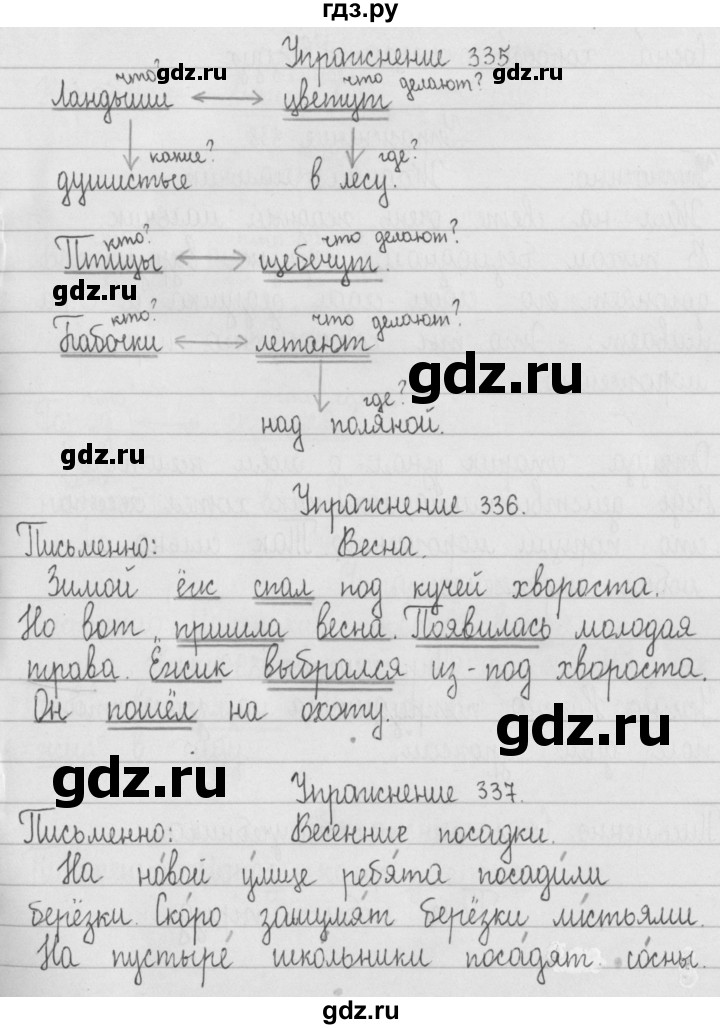 гдз.ру
Упражнение 335
что? что делают?
gdz.ru gdz.ru
Ландыши цветут
какие? где?
душистые в лесу.
gdz.ru gdz.ru
кто? что делают?
Птицы щебечут.
gdz.ru
кто? что делают?
Бабочки летают
gdz.ru
где?
над поляной.
gdz.ru
Упражнение 336.
Письменно: Весна.
Зимой ёж спал под кучей хвороста.
Но вот пришла весна. Появилась молодая
трава. Ёжик выбрался из-под хвороста.
Он пошёл на охоту.
gdz.ru
gdz.ru
Упражнение 337.
Письменно: Весенние поса́дки.
На но́вой у́лице ребя́та посади́ли
берёзки. Ско́ро зашумя́т берёзки ли́стьями.
На пустыре́ шко́льники поса́дят со́сны.
gdz.ru